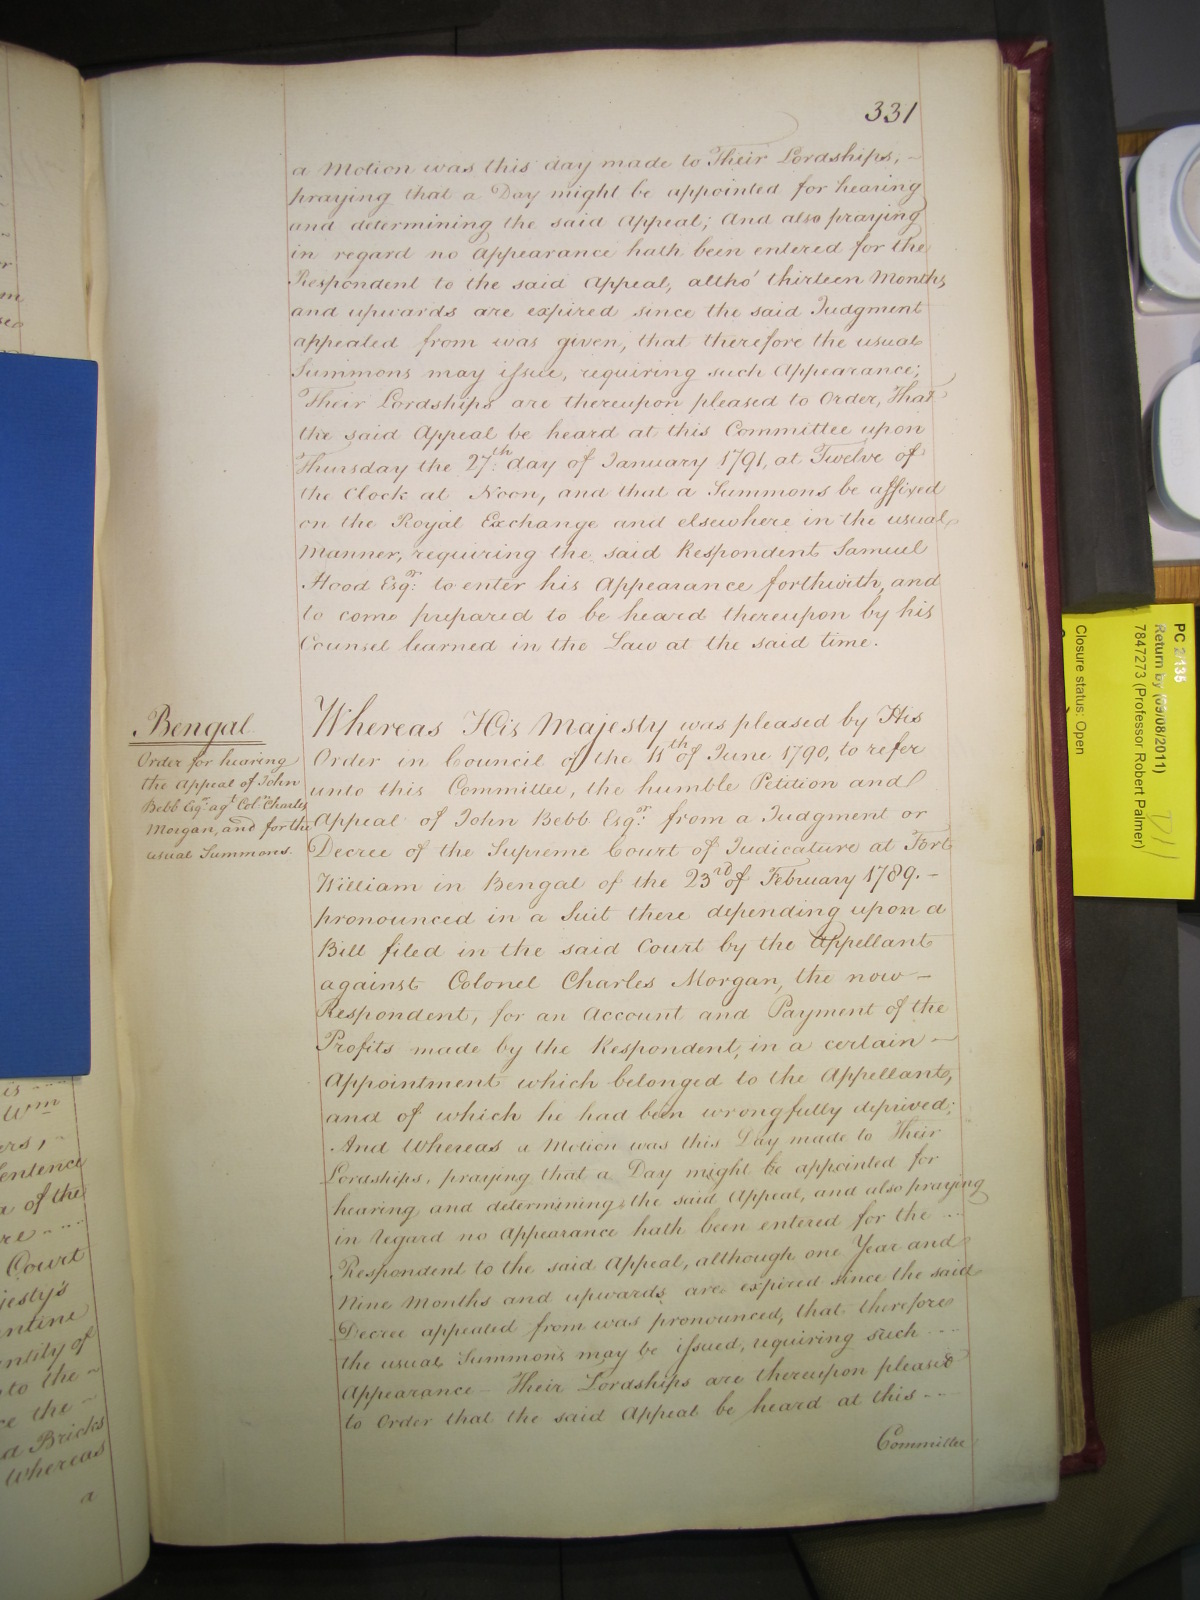 331
a Motion was this day made to Their Lordships, –
praying that a Day might be appointed for hearing
and determining the said Appeal; And also praying
in regard no Appearance hath been entered for the
Respondent to the said Appeal, altho' thirteen Months
and upwards are expired since the said Judgment
appealed from was given, that therefore the usual
Summons may issue, requiring such Appearance;
Their Lordships are thereupon pleased to Order, That
the said Appeal be heard at this Committee upon
Thursday the 27th day of January 1791, at Twelve of
the Clock at Noon, and that a Summons be affixed
on the Royal Exchange and elsewhere in the usual
Manner, requiring the said Respondent Samuel
Hood Esqr. to enter his Appearance forthwith, and
to come prepared to be heard thereupon by his
Counsel learned in the Law at the said time.
Bengal
Order for hearing
the Appeal of John
Bebb Esqr. agt. Coln. Charles
Morgan, and for the
usual Summons.
Whereas His Majesty was pleased by His
Order in Council of the 11th of June 1790, to refer
unto this Committee, the humble Petition and
Appeal of John Bebb Esqr. from a Judgment or
Decree of the Supreme Court of Judicature at Fort
William in Bengal of the 23rd of February 1789. –
pronounced in a Suit there depending upon a
Bill filed in the said Court by the Appellant
against Colonel Charles Morgan, the now –
Respondent, for an Account and Payment of the
Profits made by the Respondent, in a certain –
Appointment which belonged to the Appellant,
and of which he had been wrongfully deprived;
And Whereas a Motion was this Day made to Their
Lordships, praying that a Day might be appointed for
hearing and determining the said Appeal, and also praying
in regard no Appearance hath been entered for the ...
Respondent to the said Appeal, although one Year and
Nine Months and upwards are expired since the said
Decree appealed from was pronounced, that therefore
the usual Summons may be issued, requiring such ....
Appearance – Their Lordships are thereupon pleased
to Order that the said Appeal be heard at this ....
Committee
Wm
entence
of the
Court
jesty's
ntity of
to the –
the
Bricks
Whereas
a
PC 2/135
Return by (09/08/2011)
7847273 (Professor Robert Palmer)
Closure status: Open
D11